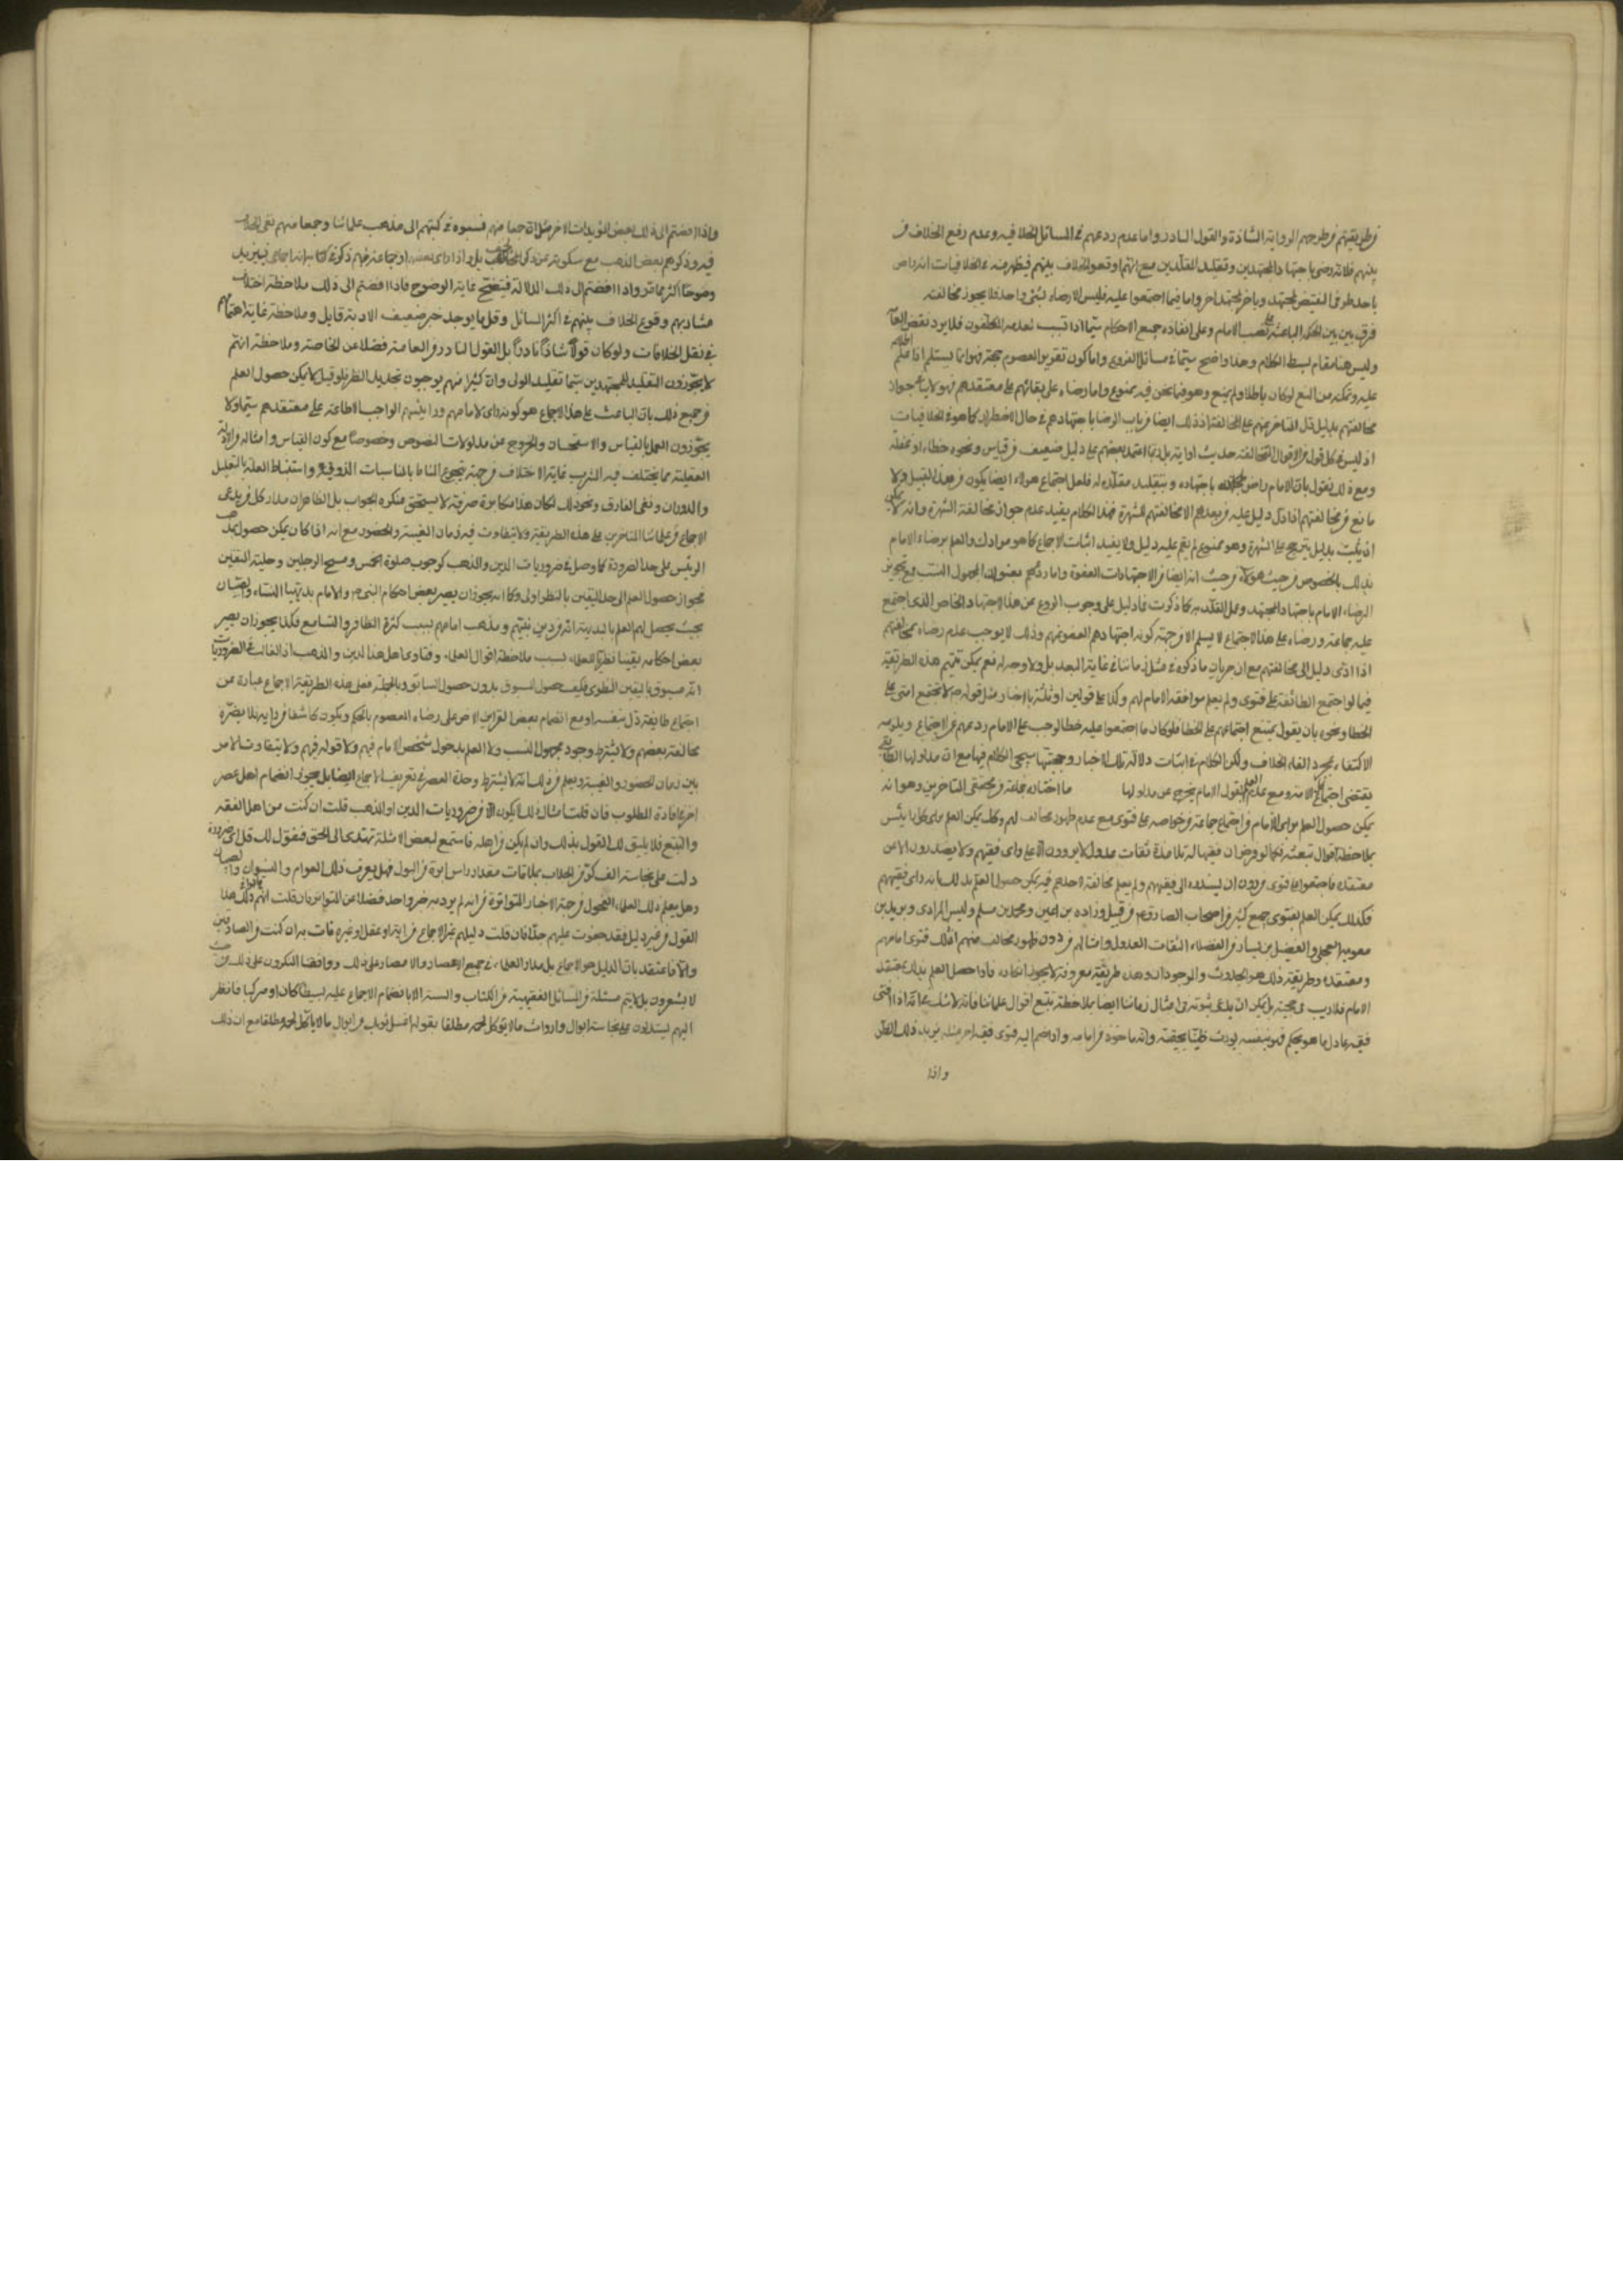 من طريقتهم من طرحهم الرواية الشاذة والقول النادر واما عدم ردعهم في المسائل الخلافية وعدم رفع الخلاف من
بينهم فلانه رضي باجتهاد المجتهدين وتقليد المقلدين مع انهم اوقعوا الخلاف بينهم فيظهر منه في الخلافيات انه راض
باحد طرفي النقيض لمجتهد وبالاخر لمجتهد اخر واما فيما اجتمعوا عليه فليس الا رضاه بشيء واحد فلا يجوز مخالفته
فرق بين بين الحكم الباعثة على نصب الامام وعلى انفاذه جميع الاحكام سيما اذا تسبب لعدمه المكلفون فلا يرد نقض
وليس هنا مقام بسط الكلام وهذا واضح سيما في مسائل الفروع واما كون تقرير المعصوم حجة فهو انما يسلم اذا علم
عليه وتمكنه من المنع لو كان باطلا ولم يمنع وهو فيما نحن فيه ممنوع واما رضاه على بقائهم على معتقدهم فهو لا ينافي جواز
مخالفتهم بدليل دل المتاخر منهم على المخالفة اذ ذلك ايضا من باب الرضا باجتهادهم في حال الاضطرار كما هو في الخلافيات
اذ ليس في كل قول من الاقوال المتخالفة حديث او اية بل ربما اعتمد بعضهم على دليل ضعيف من قياس ونحوه خطاء او غفلة
ومع ذلك نقول بان الامام راض باجتهاده وبتقليد مقلده له فلعل اجتماع هؤلاء ايضا يكون من هذا القبيل ولا
مانع من مخالفتهم اذا دل دليل عليه من بعدهم الا مخالفتهم للشهرة فهذا الكلام يفيد عدم جواز مخالفة الشهرة وانه لا يمكن
ان يثبت بدليل يترجح على الشهرة وهو ممنوع لم يقم عليه دليل ولا يفيد اثبات الاجماع كما هو مرادك والعلم برضاء الامام
بذلك بالخصوص من حيث هو لا من حيث انه ايضا من الاجتهادات المعفوة واما ردهم بعنوان المجهول النسب فمع تجويز
الرضاء الامام باجتهاد المجتهد وعمل المقلد به كما ذكرت فما دليل على وجوب الردع عن هذا الاجتهاد الخاص الذي اجتمع
عليه جماعة ورضاه على هذا الاجتماع لا يسلم الا من جهة كونه اجتهادهم المعفو عنهم وذلك لا يوجب عدم رضاه بمخالفتهم
اذا ادى دليل الى مخالفتهم مع ان جريان ما ذكروه في مثل زماننا في غاية البعد بل ولا وجه له نعم يمكن تتميم هذه الطريقة
فيما لو اجتمع الطائفة على فتوى ولم يعلم موافقة الامام لهم وكذا على قولين او ثلثة بالاخبار مثل قوله لا تجتمع امتي على
الخطا ونحوه بان يقول يمتنع اجتماعهم على الخطا فلو كان ما اجتمعوا عليه خطا لوجب على الامام ردعهم عن الاجتماع
الاكتفاء بمجرد القاء الخلاف ولكن الكلام في اثبات دلالة تلك الاخبار وحجيتها سيجيء الكلام فيها مع ان مدلولها
يقتضي اجتماع كل الامة ومع عدم العلم بقول الامام يخرج عن مدلولها ما اختاره جماعة من محققي المتاخرين وهو انه
يمكن حصول العلم براي الامام من اجتماع جماعة من خواصه على فتوى مع عدم ظهور مخالف لهم وكك يمكن العلم براي كل رئيس
بملاحظة اقوال تبعته فكما لو فرض ان فقيها له تلامذة ثقات عدول لا يروون الا عن راي فقيههم ولا يصدرون الا عن
معتقده فاجتمعوا على فتوى من دون ان يسندوه الى فقيههم ولم يعلم مخالفة لاحدهم فيه يمكن حصول العلم بذلك بانه راي فقيههم
فكذلك يمكن العلم بفتوى جمع كثير من اصحاب الصادق من قبيل زرارة بن اعين ومحمد بن مسلم وليث المرادي وبريد بن
معوية العجلي والفضيل بن يسار من الفضلاء الثقات العدول وامثالهم من دون ظهور مخالف منهم ان ذلك فتوى امامهم
ومعتقده وطريقته وذلك هو الحدس والوجدان وهذه طريقة معروفة لا يجوز انكاره فاذا حصل العلم بذلك بمعتقد
الامام فلا ريب في حجيته بل يمكن ان يدعى ثبوته في امثال زماننا ايضا بملاحظة تتبع اقوال علمائنا فانه لا شك في انه اذا افتى
فقيه عادل ماهر بحكم فهو بنفسه يورث ظنا بحقيته وانه ماخوذ من امامه واذا ضم اليه فتوى فقيه اخر مثله يزيد ذلك الظن
واذا
واذا انضم الى ذلك بعض المؤيدات الاخر مثل ان جمعا منهم نسبوه في كتبهم الى مذهب علمائنا وجمعا منهم نفي الخلاف
فيه وذكرهم بعض المذهب مع سكوته عن ذكر المخالف بل واذا راى بعضهم او جماعة منهم ذكر في كتابه انه اجماعي فيزيد
وضوحا اكثر مما مر واذا انضم الى ذلك الدلالة فيتضح غاية الوضوح فاذا انضم الى ذلك ملاحظة اختلاف
مشاربهم ووقوع الخلاف بينهم في اكثر المسائل وقلما يوجد خبر ضعيف الا وبه قايل وملاحظة غاية اهتمامهم
في نقل الخلافات ولو كان قولا شاذا نادرا بل القول النادر من العامة فضلا عن الخاصة وملاحظة انهم
لا يجوزون التقليد للمجتهدين سيما تقليد الموتى وان كثيرا منهم يوجبون تجديد النظر فلو قيل لا يمكن حصول العلم
من جميع ذلك بان الباعث على هذا الاجماع هو كونه راي امامهم ورئيسهم الواجب الاطاعة على معتقدهم سيما ولا
يجوزون العمل بالقياس والاستحسان والخروج عن مدلولات النصوص وخصوصا مع كون القياس وامثاله من الادلة
العقلية مما يختلف فيه المشرب غاية الاختلاف من جهة تخريج المناط بالمناسبات الذوقية واستنباط العلة بالتعليل
والدوران ونفي الفارق ونحو ذلك لكان هذا مكابرة صرفة لا يستحق منكره الجواب بل الظاهر ان مدار كل من يدعي
الاجماع من علمائنا المتاخرين على هذه الطريقة ولا يتفاوت فيه زمان الغيبة والحضور مع انه اذا كان يمكن حصول
الرئيس على حد الضرورة كما وصل في ضروريات الدين والمذهب كوجوب صلوة الخمس ومسح الرجلين وحلية المتعتين
فجواز حصول العلم الى حد اليقين بالنظر اولى وكما انه يجوز ان يصير بعض احكام النبي والامام بديهيا للنساء والصبيان
بحيث يحصل لهم العلم بالبديهة انه من دين نبيهم ومذهب امامهم بسبب كثرة التظافر والتسامع فكذا يجوز ان يصير
بعض احكامه يقينا نظريا للعلماء بسبب ملاحظة اقوال العلماء وفتاوى اهل هذا الدين والمذهب اذ الغالب في الضروريات
انه مسبوق باليقين النظري فكيف حصول المسبوق بدون حصول السابق وبالجملة فعلى هذه الطريقة الاجماع عبارة عن
اجتماع طايفة دل بنفسه او مع انضمام بعض القراين الاخر على رضاء المعصوم بالحكم ويكون كاشفا من رايه فلا يضره
مخالفة بعضهم ولا يشترط وجود مجهول النسب ولا العلم بدخول شخص الامام فيهم ولا قوله فيهم ولا يتفاوت الامر
بين زمان الحضور والغيبة ويعلم من ذلك انه لا يشترط وحدة العصر في تعريف الاجماع ايضا بل يجوز انضمام اهل عصر
اخر في افادة المطلوب فان قلت مثال ذلك لا يكون الا من ضروريات الدين او المذهب قلت ان كنت من اهل الفقه
والتتبع فلا يليق لك القول بذلك وان لم يكن من اهله فاستمع لبعض الامثلة تهتدي الى الحق فنقول لك قل اي ضرورة
دلت على نجاسة الف كر من الجلاب بملاقات مقدار راس ابرة من البول فهل يعرف ذلك العوام والنسوان والصبيان
وهل يعلم ذلك العلماء الفحول من جهة الاخبار المتواترة من انه لم يرد به خبر واحد فضلا عن المتواتر فان قلت انهم قالوا هذا
القول من غير دليل فقد جفوت عليهم جدا فان قلت دليلهم غير الاجماع من اية او عقل او غيره فات به ان كنت من الصادقين
والا فاعتقد بان الدليل هو الاجماع بل مدار العلماء في جميع الاعصار والامصار على ذلك ووافقنا المنكرون على ذلك من حيث
لا يشعرون بل لا يتم مسئلة من المسائل الفقهية من الكتاب والسنة الا بانضمام الاجماع عليه بسيطا كان او مركبا فانظر
اليهم يستدلون على نجاسة ابوال وارواث ما لا يؤكل لحمه مطلقا بقوله اغسل ثوبك من ابوال ما لا يأكل لحمه مطلقا مع ان ذلك